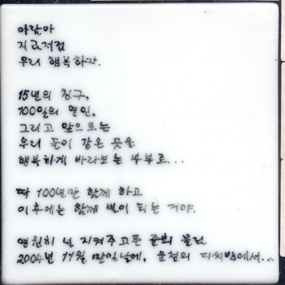 아람아
지금처럼
우리 행복하자.
15년의 친구,
100일의 연인,
그리고 앞으로는
우리 둘이 같은 곳을
행복하게 바라보는 부부로...
딱 100년만 함께 하고
이후에는 함께 별이 되는 거야.
영원히 널 지켜주고픈
2004년 11월 만인날에, 춘천의 피씨방에서...